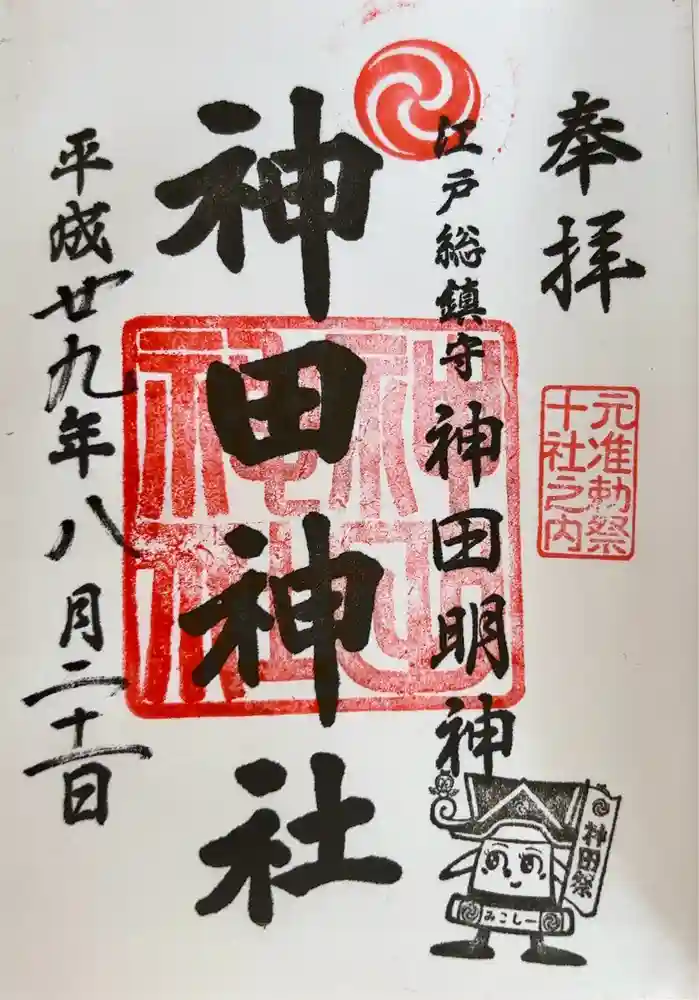 奉拝
元准勅祭
十社之内
江戸総鎮守 神田明神
神田祭
みこしー
神田神社
平成廿九年八月二十一日